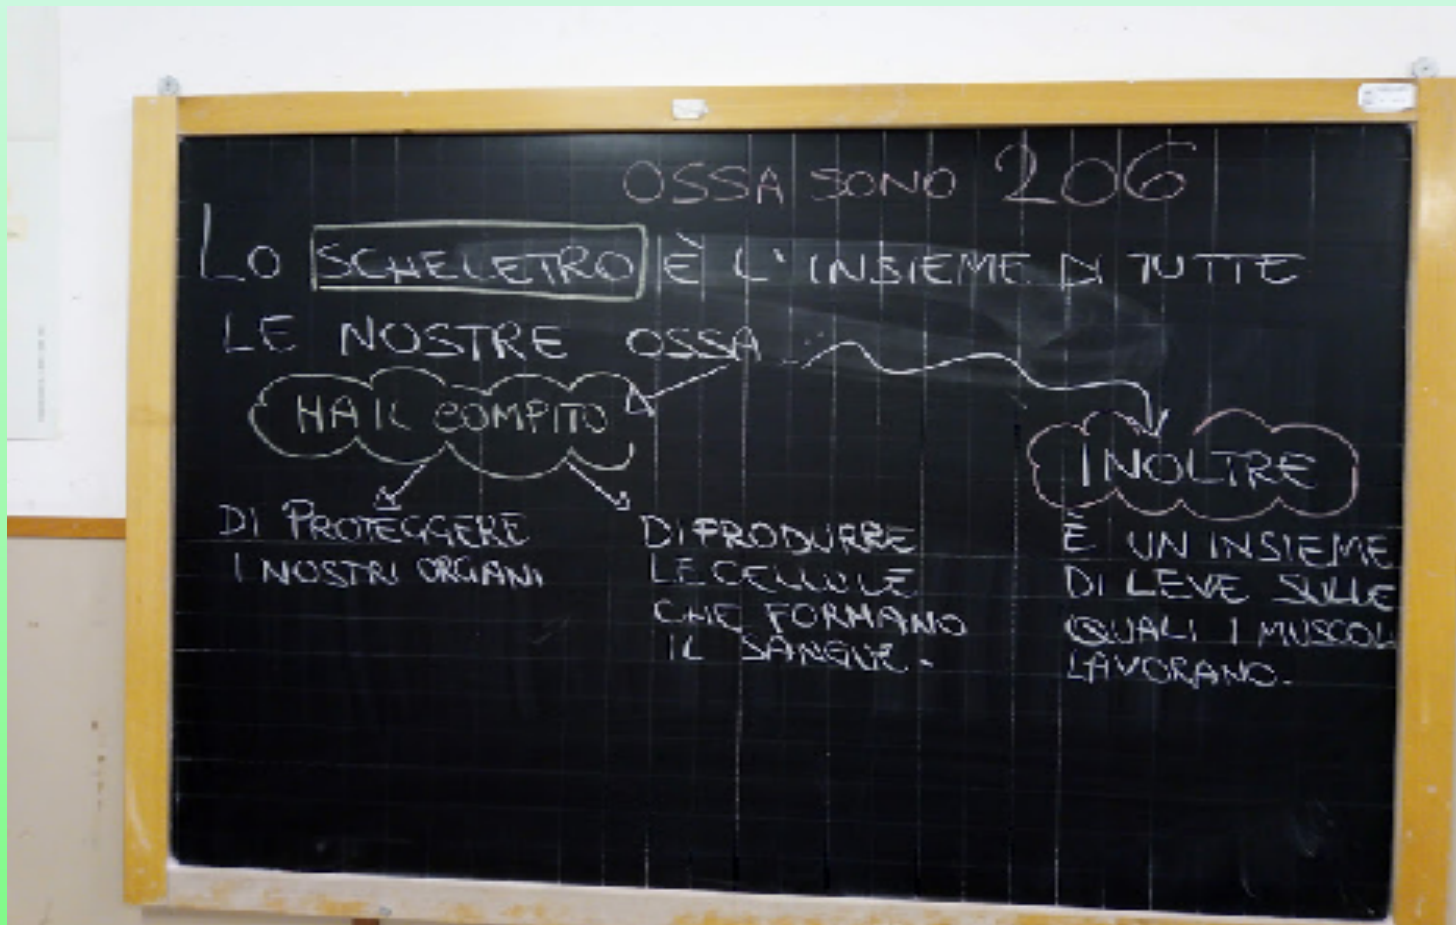 OSSA SONO 206
LO SCHELETRO È L'INSIEME DI TUTTE
LE NOSTRE OSSA
HA IL COMPITO
DI PROTEGGERE
I NOSTRI ORGANI
DI PRODURRE
LE CELLULE
CHE FORMANO
IL SANGUE.
INOLTRE
È UN INSIEME
DI LEVE SULLE
QUALI I MUSCOLI
LAVORANO.